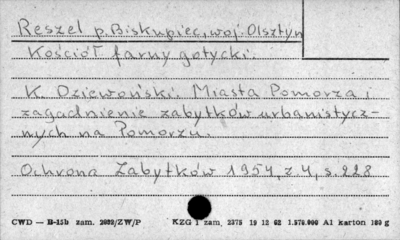 Reszel p. Biskupiec, woj. Olsztyn
Kościół farny gotycki.
K. Dziewoński: Miasta Pomorza i
zagadnienie zabytków urbanistycz-
nych na Pomorzu.
Ochrona Zabytków 1954, z. 4, s. 228
CWD — B-15b zam. 2802/ZW/P KZG 1 zam. 2375 19 12 62 1.570.000 A1 karton 180 g